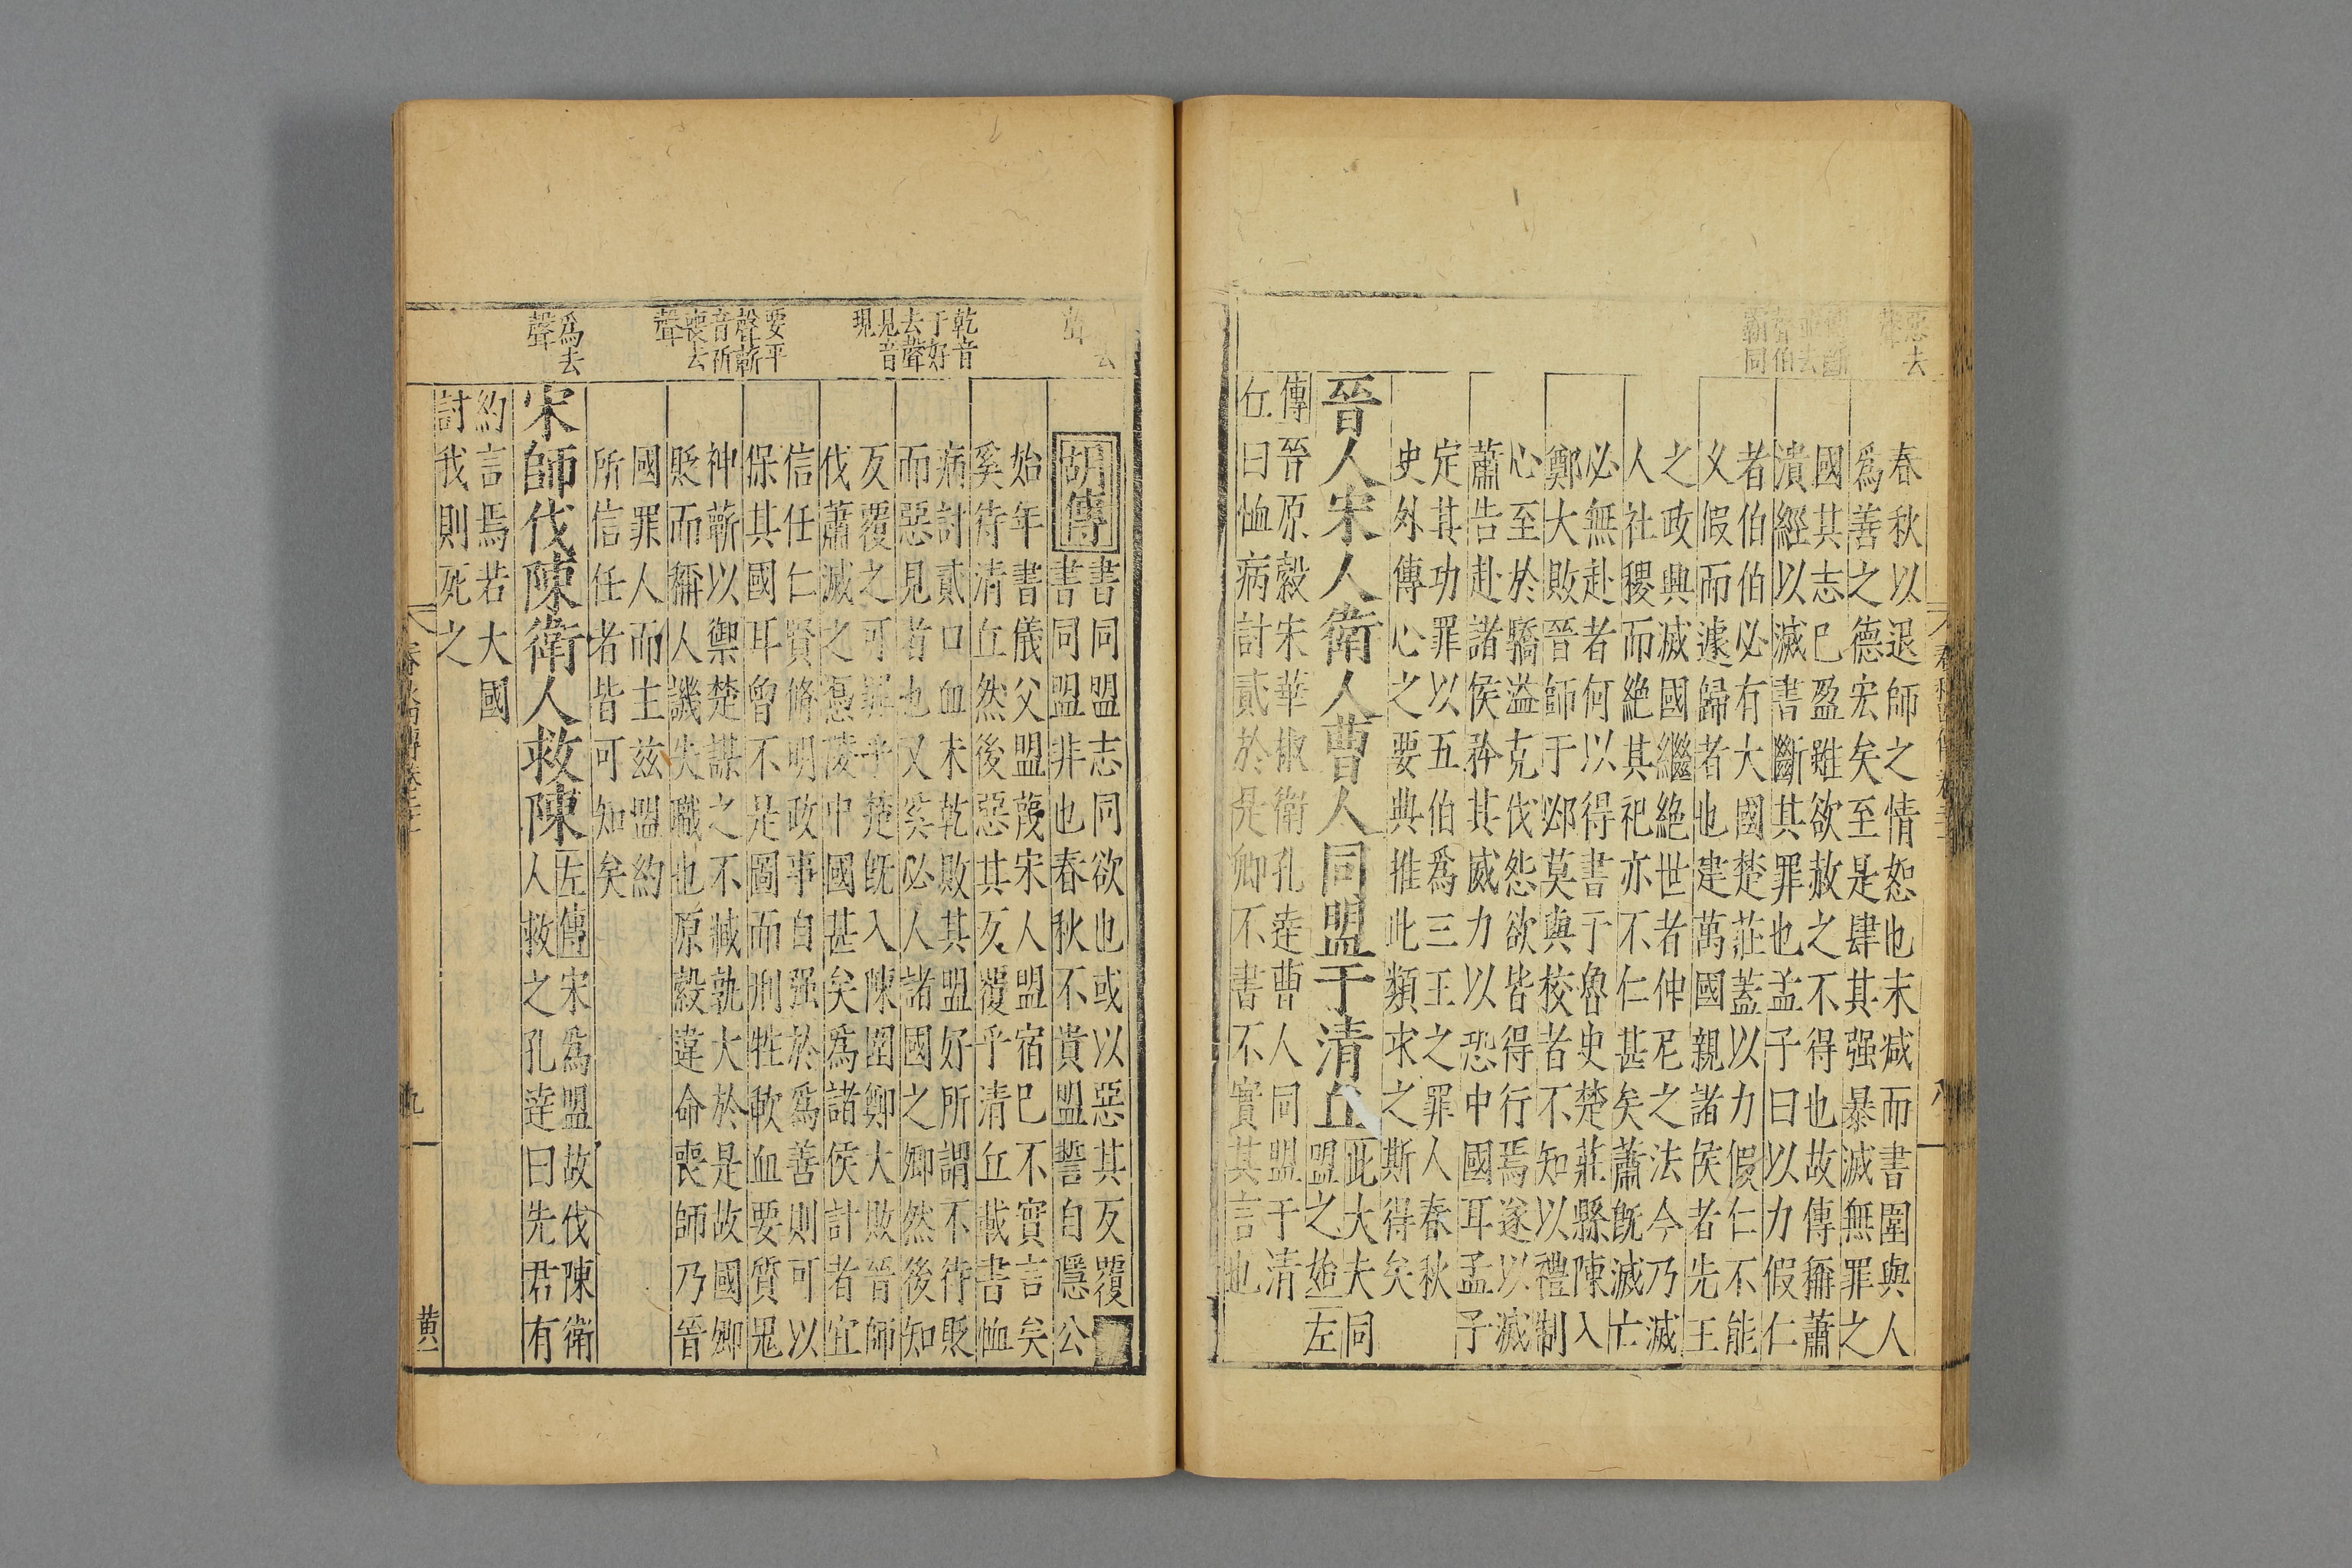 惡去
聲
春秋以退師之情恕也末減而書圍與人
為善之德宏矣至是肆其强暴滅無罪之
國其志已盈雖欲赦之不得也故傳稱蕭
潰經以滅書斷其罪也孟子曰以力假仁
者伯伯必有大國楚莊蓋以力假仁不能
乆假而遽歸者也建萬國親諸侯者先王
之政興滅國繼絕世者仲尼之法今乃滅
人社稷而絕其祀亦不仁甚矣蕭旣滅亡
必無赴者何以得書于魯史楚莊縣陳入
鄭大敗晉師于邲莫與校者不知以禮制
心至於驕溢克伐怨欲皆得行焉遂以滅
蕭告赴諸侯矜其威力以恐中國耳孟子
定其功罪以五伯為三王之罪人春秋
史外傳心之要典推此類求之斯得矣
晉人宋人衛人曹人同盟于清丘
此大夫同
盟之始左
傳晉原縠宋華椒衛孔逹曹人同盟于清
丘曰恤病討貳於是卿不書不實其言也
去
聲
乾音
于好
去聲
見音
現
要平
聲蘄
音祈
喪去
聲
為去
聲
胡傳
書同盟志同欲也或以惡其反覆
書同盟非也春秋不貴盟誓自隱公
始年書儀父盟蔑宋人盟宿巳不實言矣
奚待清丘然後惡其反覆乎清丘載書恤
病討貳口血未乾敗其盟好所謂不待貶
而惡見者也又奚必人諸國之卿然後知
反覆之可罪乎楚旣入陳圍鄭大敗晉師
伐蕭滅之憑陵中國甚矣為諸侯計者宜
信任仁賢脩明政事自强於為善則可以
保其國耳曾不是圖而刑牲歃血要質鬼
神蘄以禦楚謀之不臧孰大於是故國卿
貶而稱人譏失職也原縠違命喪師乃晉
國罪人而主兹盟約
所信任者皆可知矣
宋師伐陳衛人救陳
左傳宋為盟故伐陳衛
人救之孔逹曰先君有
約言焉若大國
討我則死之
九
黄一